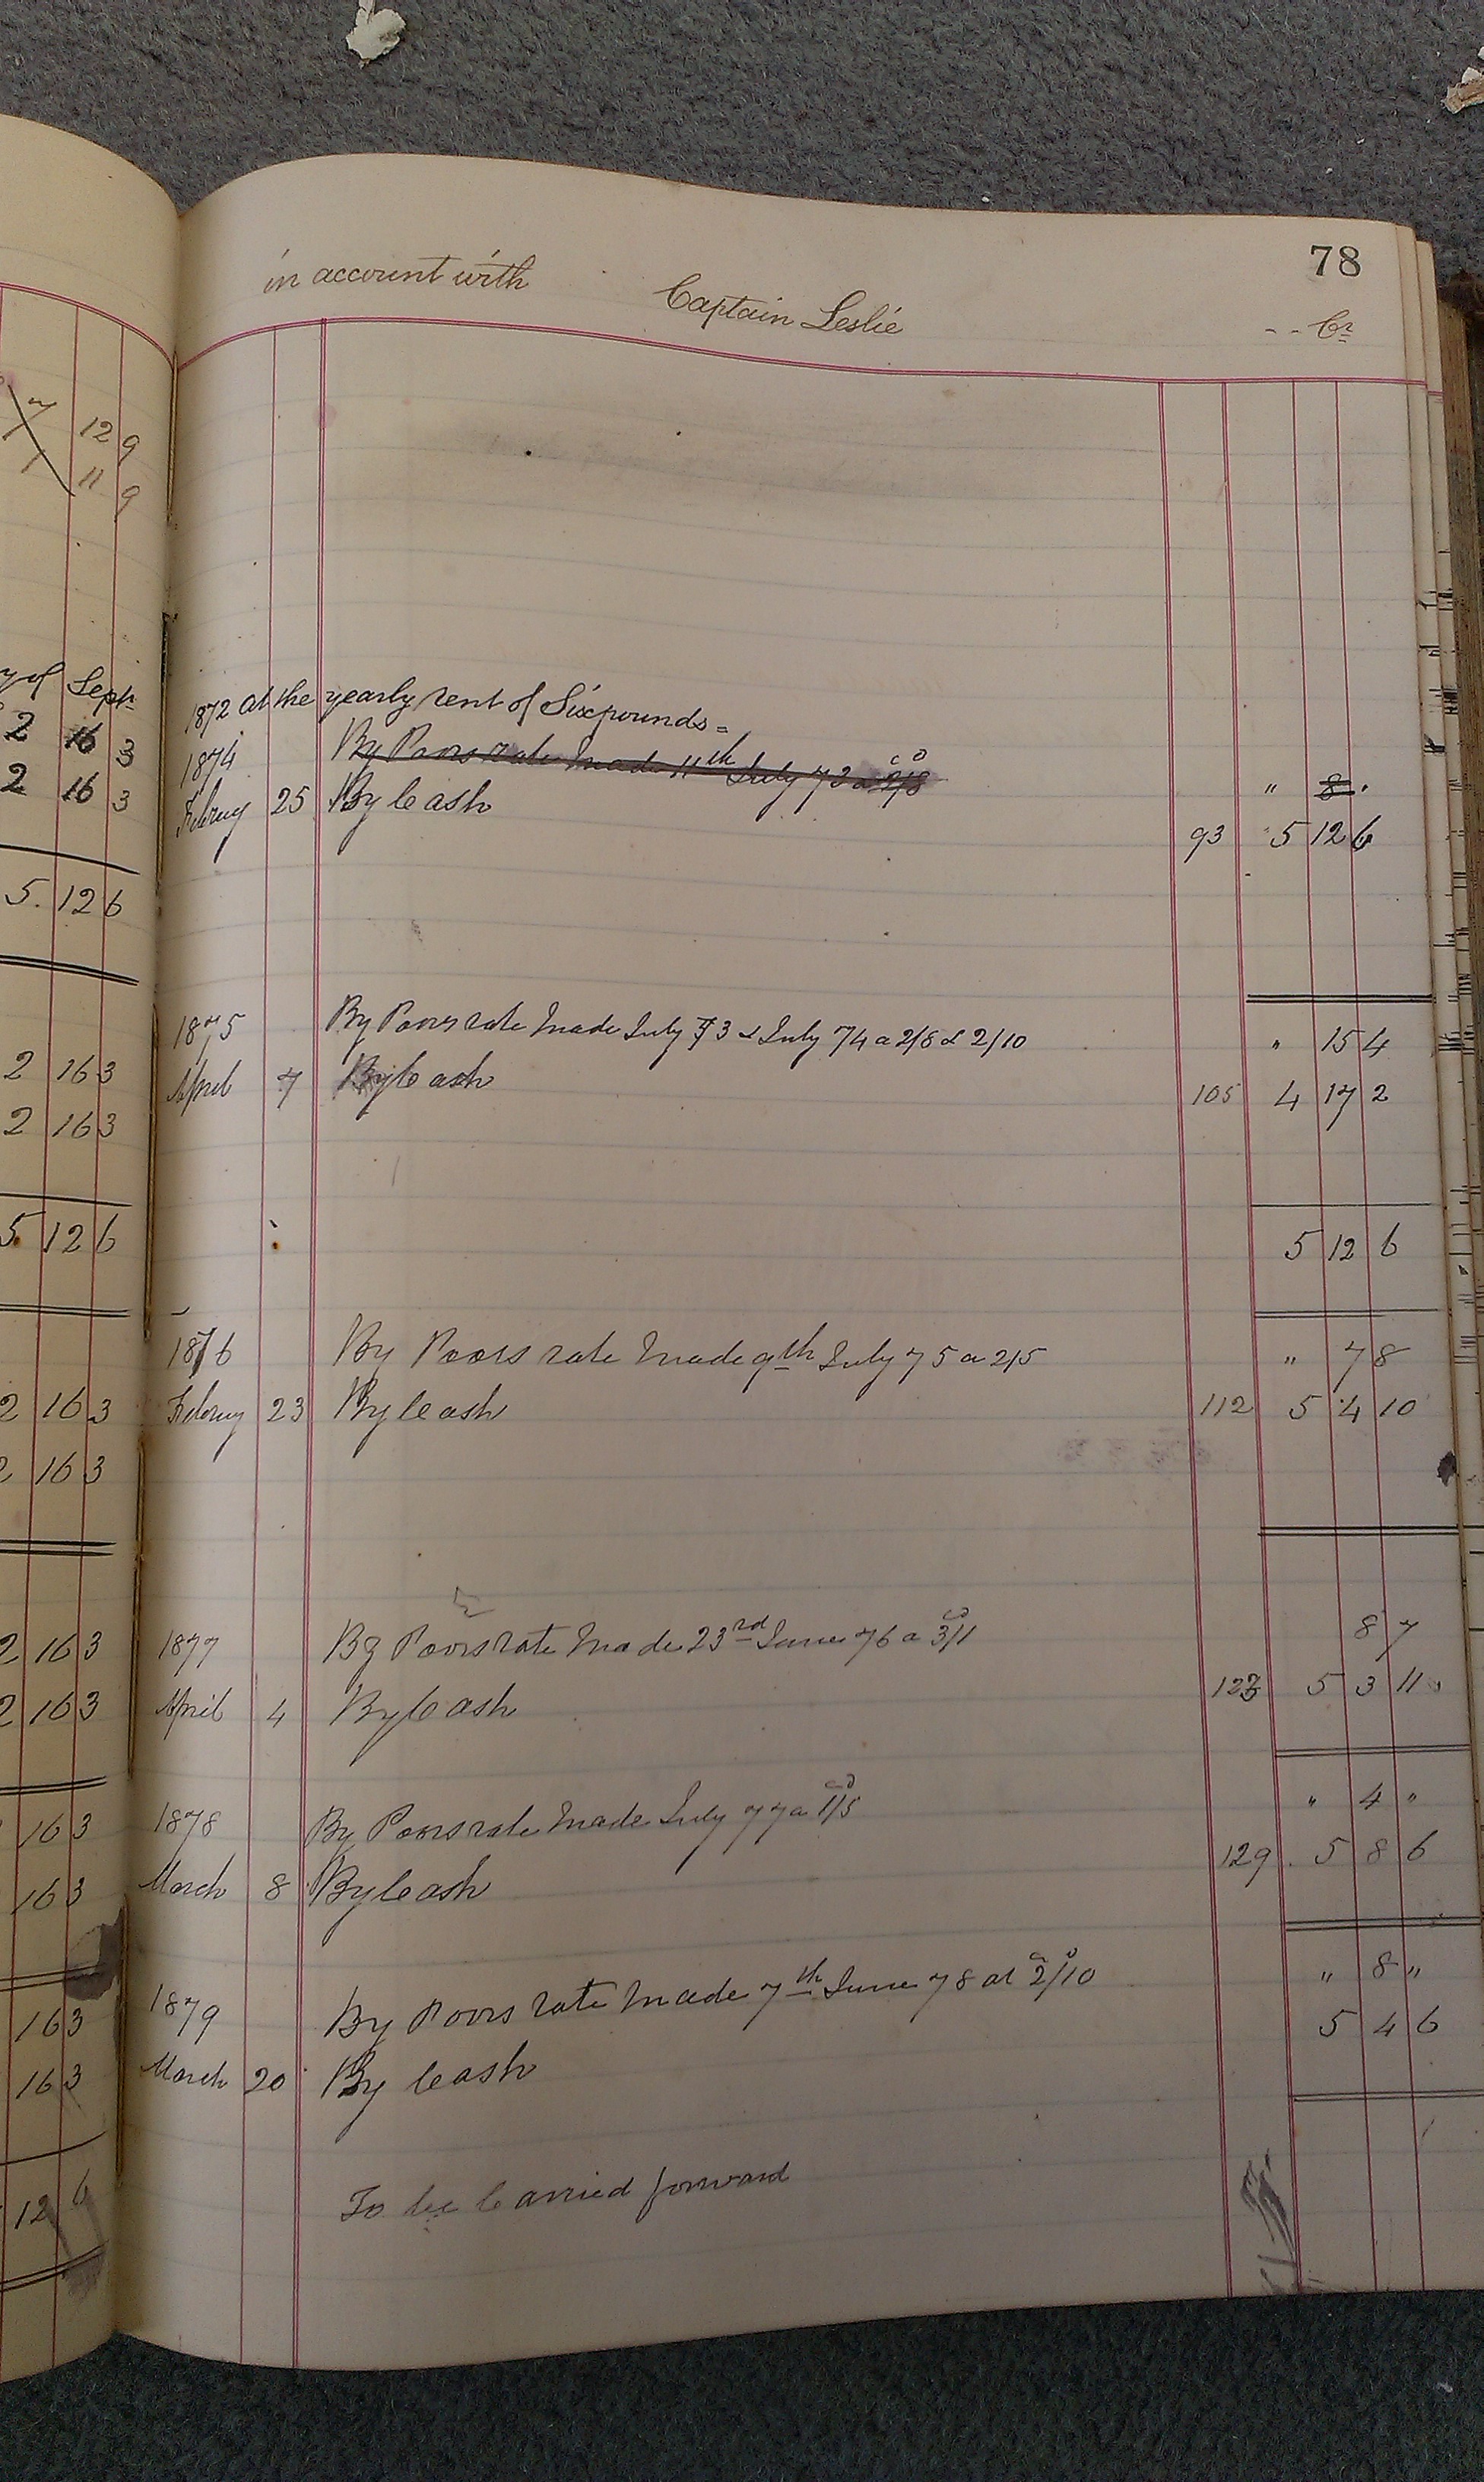 78
in account with Captain Leslie -- Cr
7 12 9
11 9
y of Sept.
2 16 3
2 16 3
5. 12 6
2 16 3
2 16 3
5. 12 6
2 16 3
2 16 3
2 16 3
2 16 3
16 3
16 3
16 3
16 3
12 6
1872 at the yearly rent of Six pounds =
1874 By Poors rate Made 11th July 73 a 2/8 " 8.
Februy 25 By Cash 93 5 12 6
1875 By Poors rate Made July 73 & July 74 a 2/8 & 2/10 " 15 4
April 7 By Cash 105 4 17 2
5 12 6
1876 By Poors rate Made 9th July 75 a 2/5 " 7 8
Februy 23 By Cash 112 5 4 10
1877 By Poors rate Made 23rd June 76 a 3/1 8 7
April 4 By Cash 123 5 3 11
1878 By Poors rate Made July 77 a 1/5 " 4 "
March 8 By Cash 129. 5 8 6
1879 By Poors rate Made 7th June 78 at 2/10 " 8 "
March 20 By Cash 5 4 6
To be Carried forward